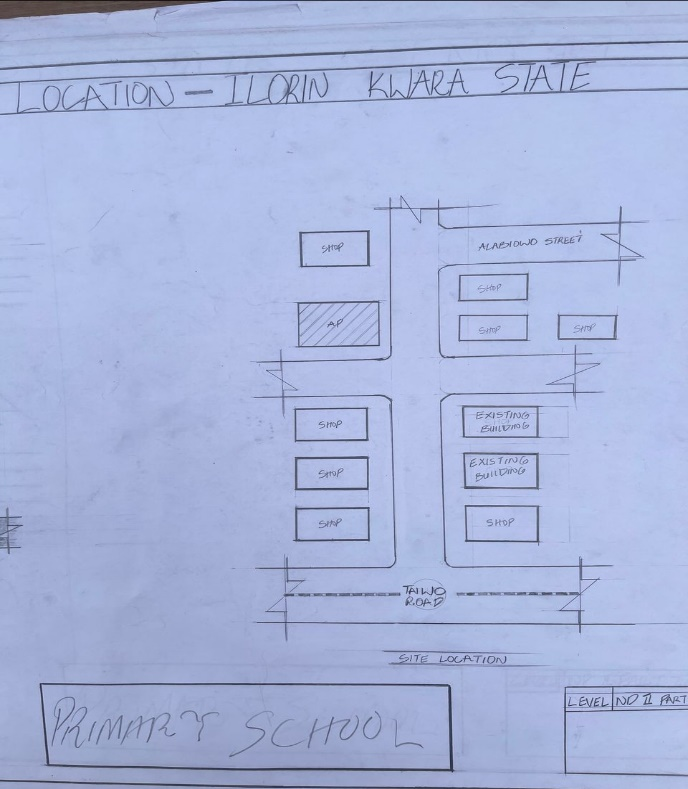 LOCATION — ILORIN KWARA STATE
ALABIOWO STREET
SHOP
SHOP
A.P
SHOP
SHOP
SHOP
EXISTING
BUILDING
SHOP
EXISTING
BUILDING
SHOP
SHOP
TAIWO
ROAD
SITE LOCATION
PRIMARY SCHOOL
LEVEL ND II PART